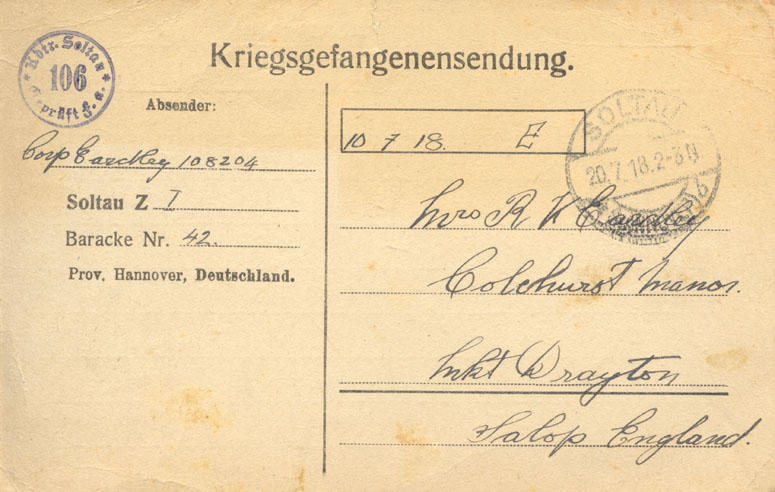 Kdtr. Soltau
106
Geprüft F. a.
Kriegsgefangenensendung.
Absender:
Corp Eardley 108204
Soltau Z I
Baracke Nr. 42.
Prov. Hannover, Deutschland.
10 7 18. E
SOLTAU
20.7.18.2-3N
Mrs R H Eardley
Colehurst Manor.
Mkt Drayton
Salop England.